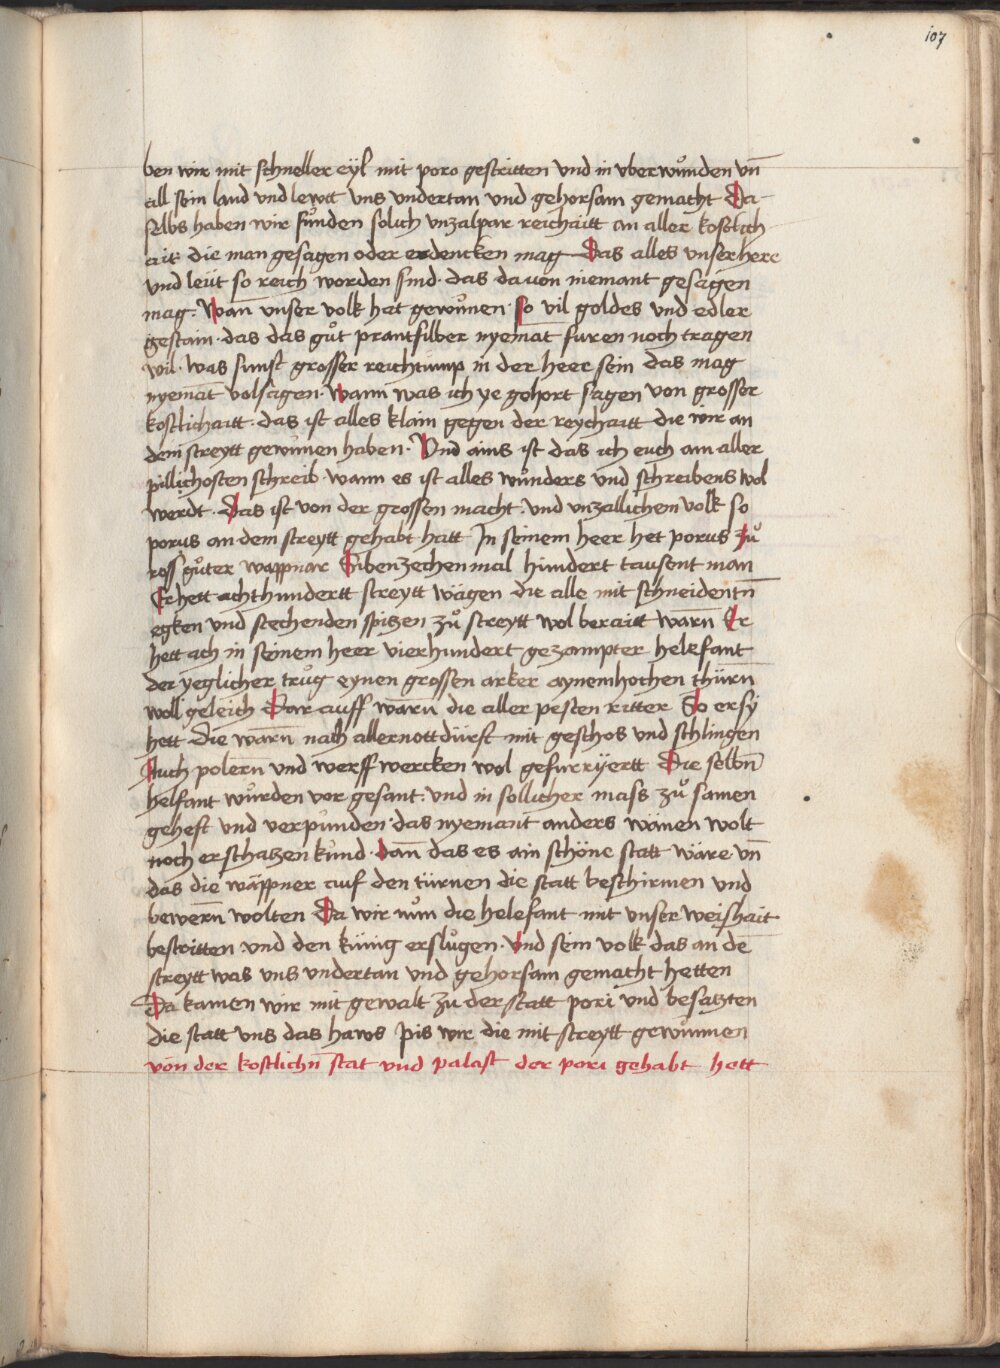 107
ben wir mit schneller eyl mit poro gestritten und in vberwůnden vn̄
all sein land und lewtt vns vndertan und gehorsam gemacht Da-
selbs haben wir fůnden solich vnzalpar reichaitt an aller kostlich
ait· die man gesagen oder erdencken mag Das alles vnser here
und leüt so reich worden sind· das dauon niemant gesagen
mag· Wan̄ vnser volk hat gewůnen· so vil goldes und edler
gestain· das das gůt prantsilber nyemāt furen noch tragen
wil· was sunst grosser reichtump in der heer sein das mag
nyemāt volsagen· Wann was ich ye gehort sagen von grosser
kostlichaitt· das ist alles klain gegen der reychaitt die wir an
dem streytt gewůnen haben· Vnd ains ist das ich euch am aller
pillichosten schreib· wann es ist alles wůnders und schreibens wol
werdt· Das ist von der grossen macht· und vnzallichem volk so
porus an dem streytt gehabt hatt In seinem heer het porus zů
ross gůter wappnar Sibenzechenmal hundert tausent man
Er hett achthundertt streytt wägen die alle mit schneidentn̄
egken und stechenden spitzen zů streytt wol beraitt warn̄ Er
hett ach in seinem heer vierhundert gezampter helefant
der yeglicher trůg eynen grossen arker aynem hochen thürn̄
woll geleich Dar auff warn̄ die aller pesten ritter So er sy
hett die warn̄ nach aller nottdürft mit geschos und schlingen
Auch polern und werffwercken wol gefurryertt Die selbn̄
helfant wůrden vor gesant· und in sollicher mass zů samen
geheft und verpůnden· das nyemant anders wänen wolt
noch erschatzen kůnd· Dan̄ das es ain schöne statt wäre vn̄
das die wäppner auf den türnen die statt beschirmen und
bewern̄ wolten Da wir nům die helefant mit vnser weishait
bestritten· und den künig erslůgen· Vnd sein volk das an dē
streytt was vns vndertan und gehorsam gemacht hetten
Da kamen wir mit gewalt zu der statt pori und besatzten
die statt vns das haws pis wir die mit streytt gewůnnen
von der kostlichn̄ stat und palast der pori gehabt hett